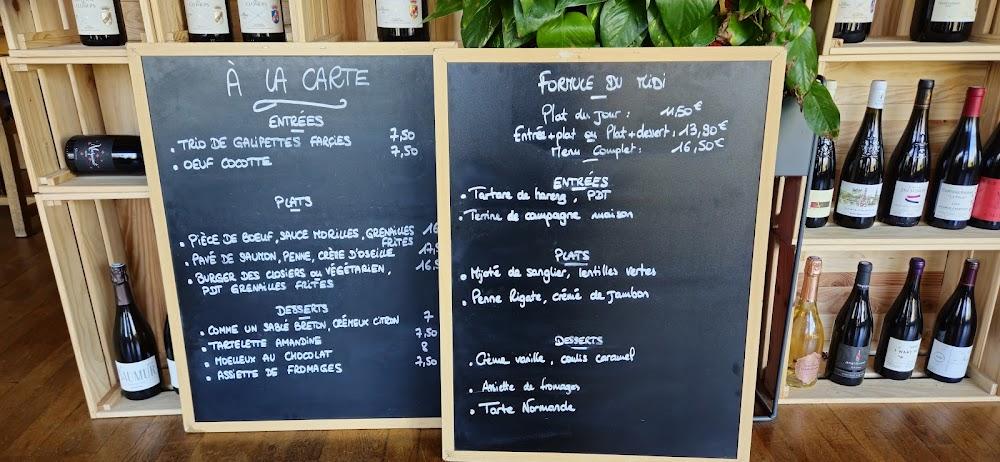 À LA CARTE
ENTRÉES
• TRIO DE GALIPETTES FARCIES 7,50
• OEUF COCOTTE 7,50
PLATS
• PIÈCE DE BOEUF, SAUCE MORILLES, GRENAILLES FRITES 16
• PAVÉ DE SAUMON, PENNE, CRÈME D'OSEILLE 17,
• BURGER DES CLOSIERS OU VÉGÉTARIEN, 16,
PDT GRENAILLES FRITES
DESSERTS
• COMME UN SABLÉ BRETON, CRÉMEUX CITRON 7
• TARTELETTE AMANDINE 7,50
• MOELLEUX AU CHOCOLAT 8
• ASSIETTE DE FROMAGES 7,50
FORMULE DU MIDI
Plat du jour : 11,50€
Entrée+plat ou Plat+dessert : 13,90€
Menu Complet : 16,50€
ENTRÉES
• Tartare de hareng, PDT
• Terrine de campagne maison
PLATS
• Mijoté de sanglier, lentilles vertes
• Penne Rigate, crème de Jambon
DESSERTS
• Crème vanille, coulis caramel
• Assiette de fromages
• Tarte Normande
SAUMUR